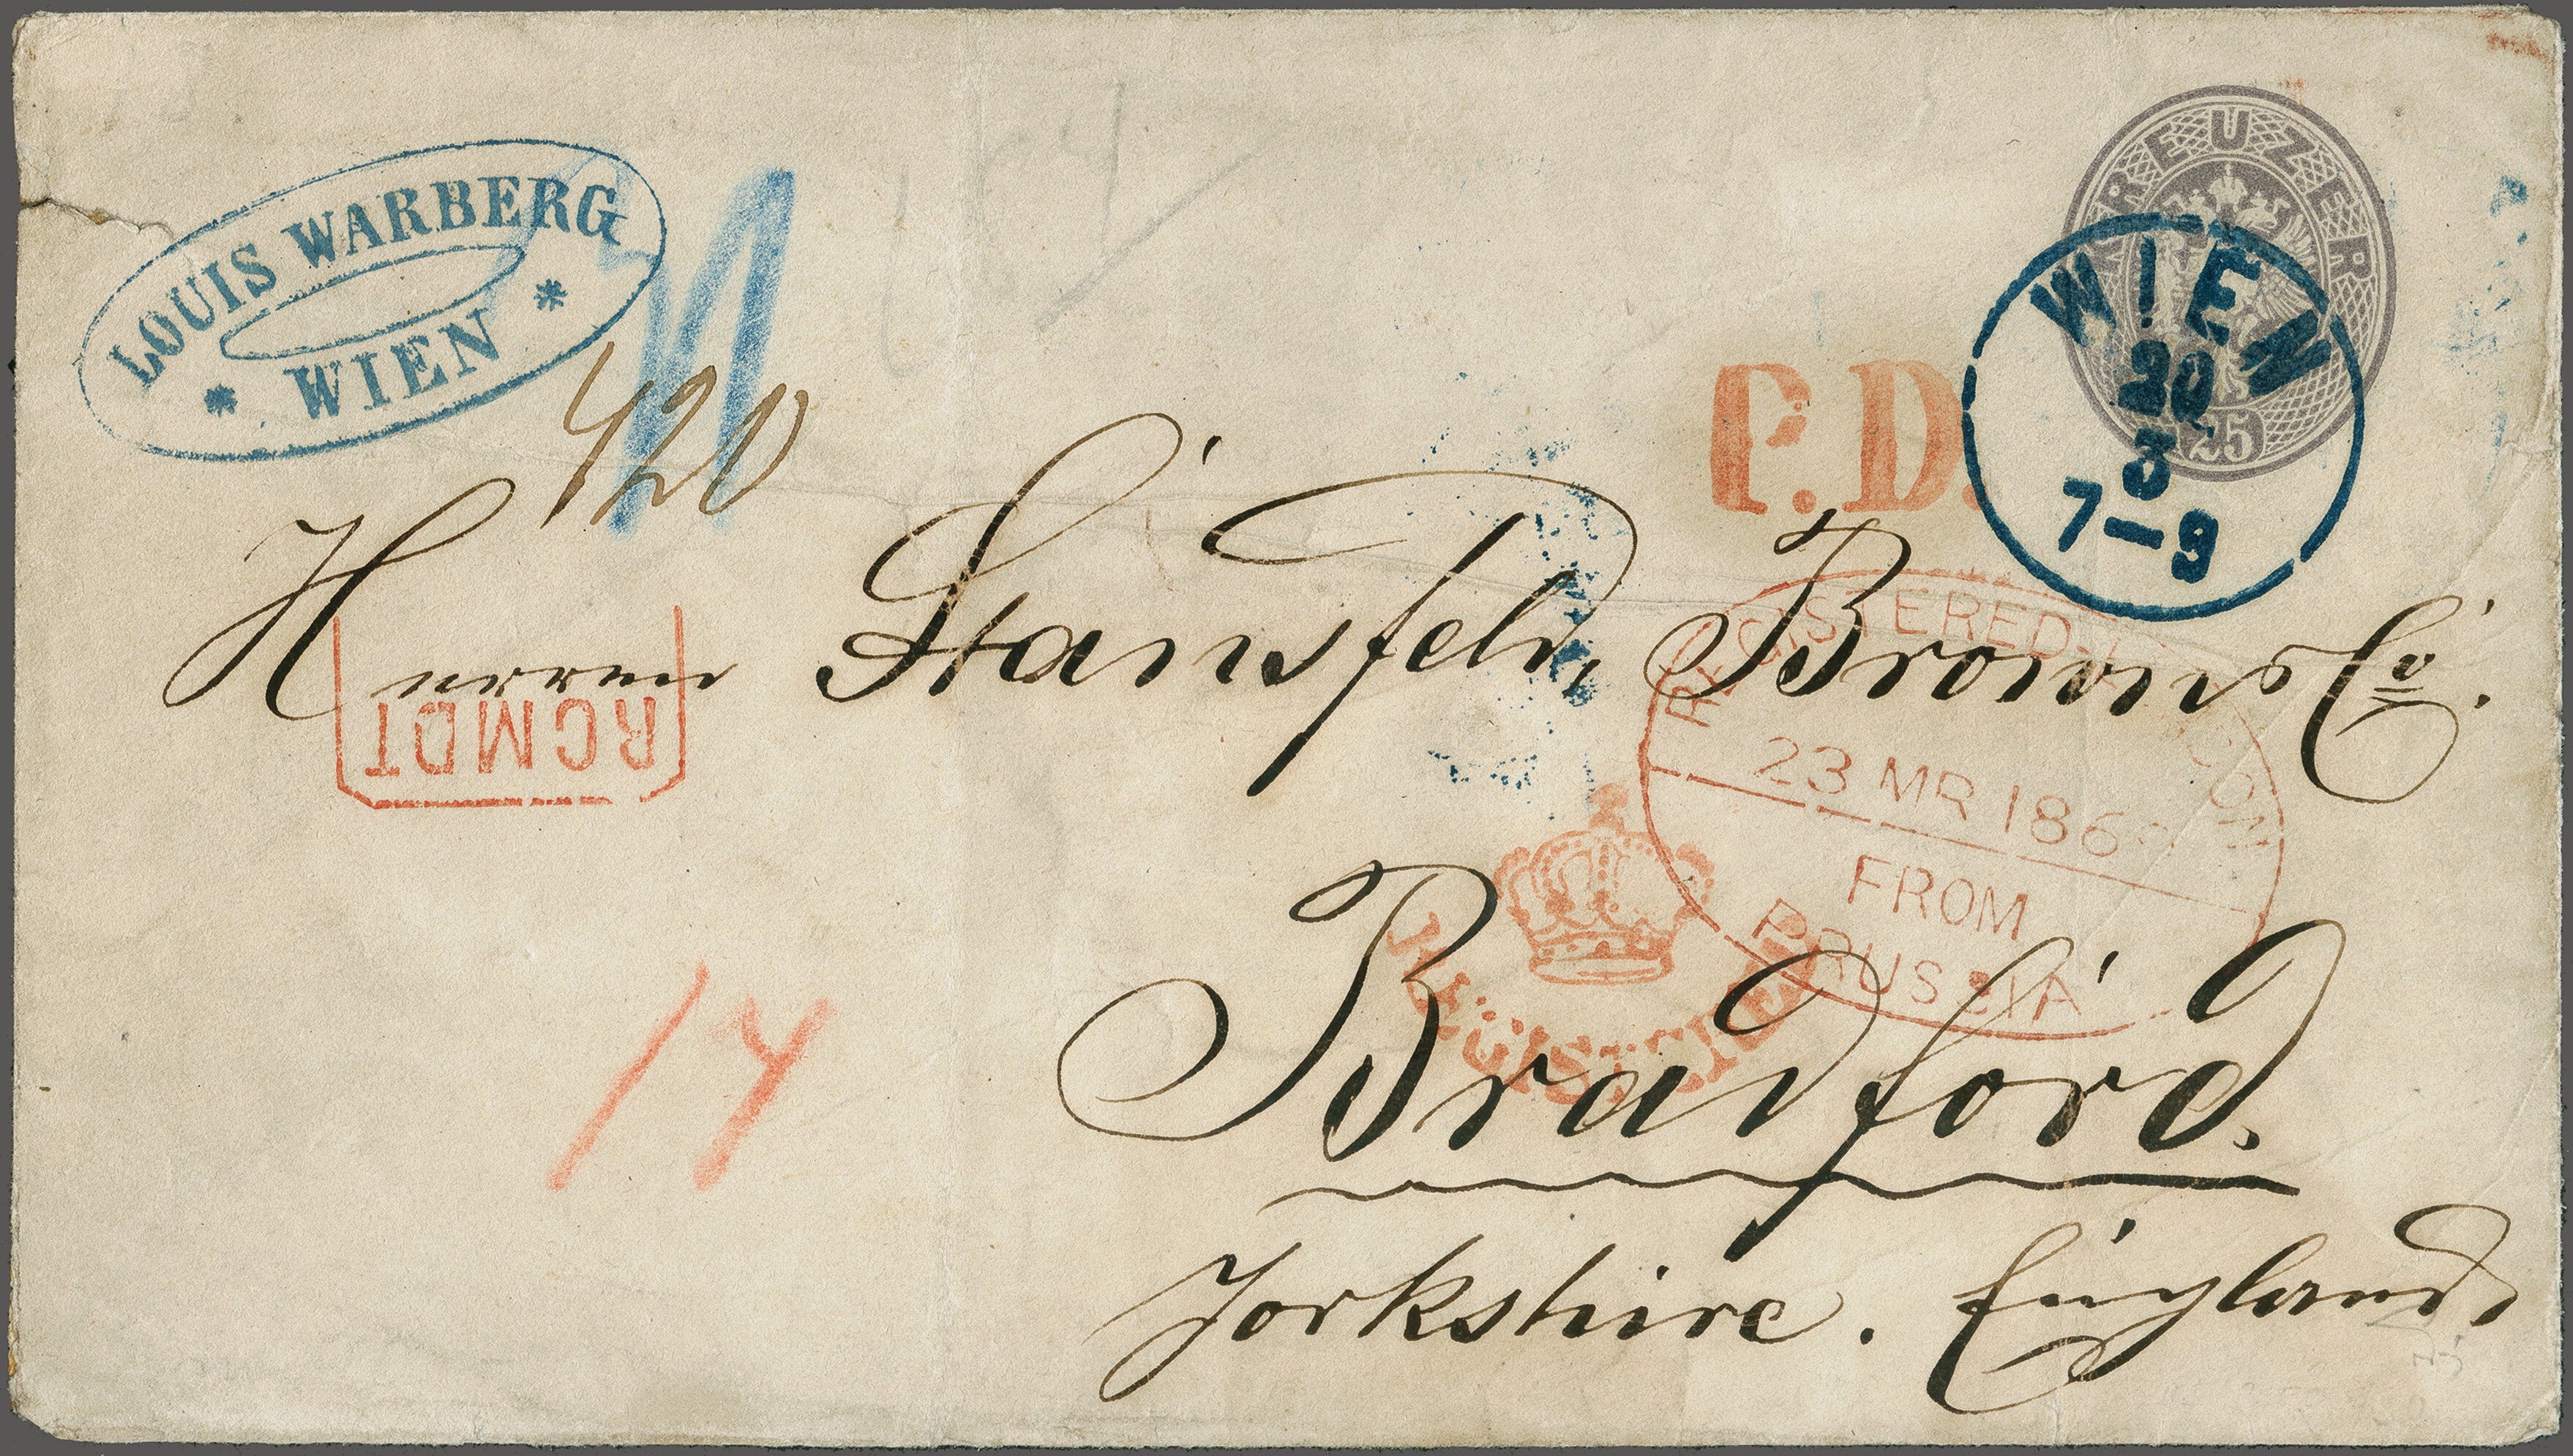 LOUIS WARBERG
* WIEN *
420
KREUZER
25
WIEN
20
3
7-9
P.D.
Herren Stansfeld, Brown & Co.
RCMDT
REGISTERED LONDON
23 MR 186
FROM
PRUSSIA
REGISTERED
14
Bradford.
Yorkshire. England